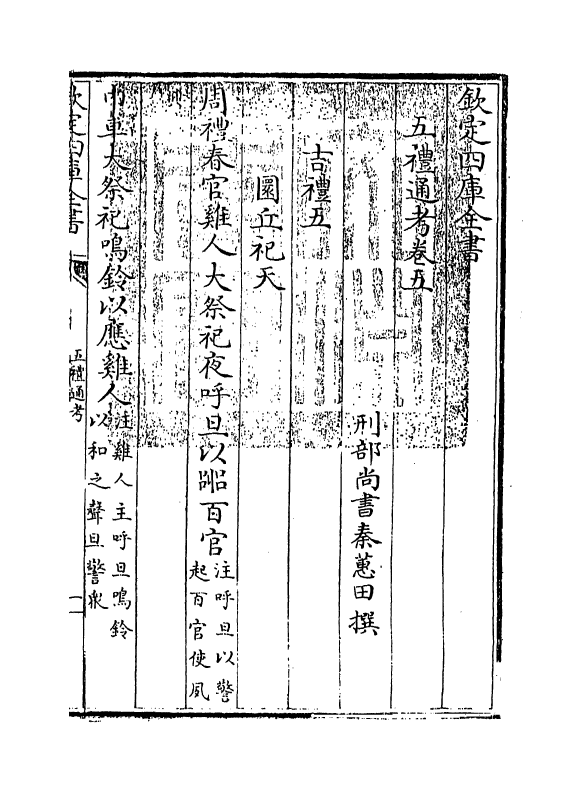 欽定四庫全書
五禮通考卷五
刑部尚書秦蕙田撰
吉禮五
圜丘祀天
周禮春官雞人大祭祀夜呼旦以嘂百官
注呼旦以警
起百官使夙
巾車大祭祀鳴鈴以應雞人
注雞人主呼旦鳴鈴
以和之聲旦警眾
欽定四庫全書
五禮通考
一